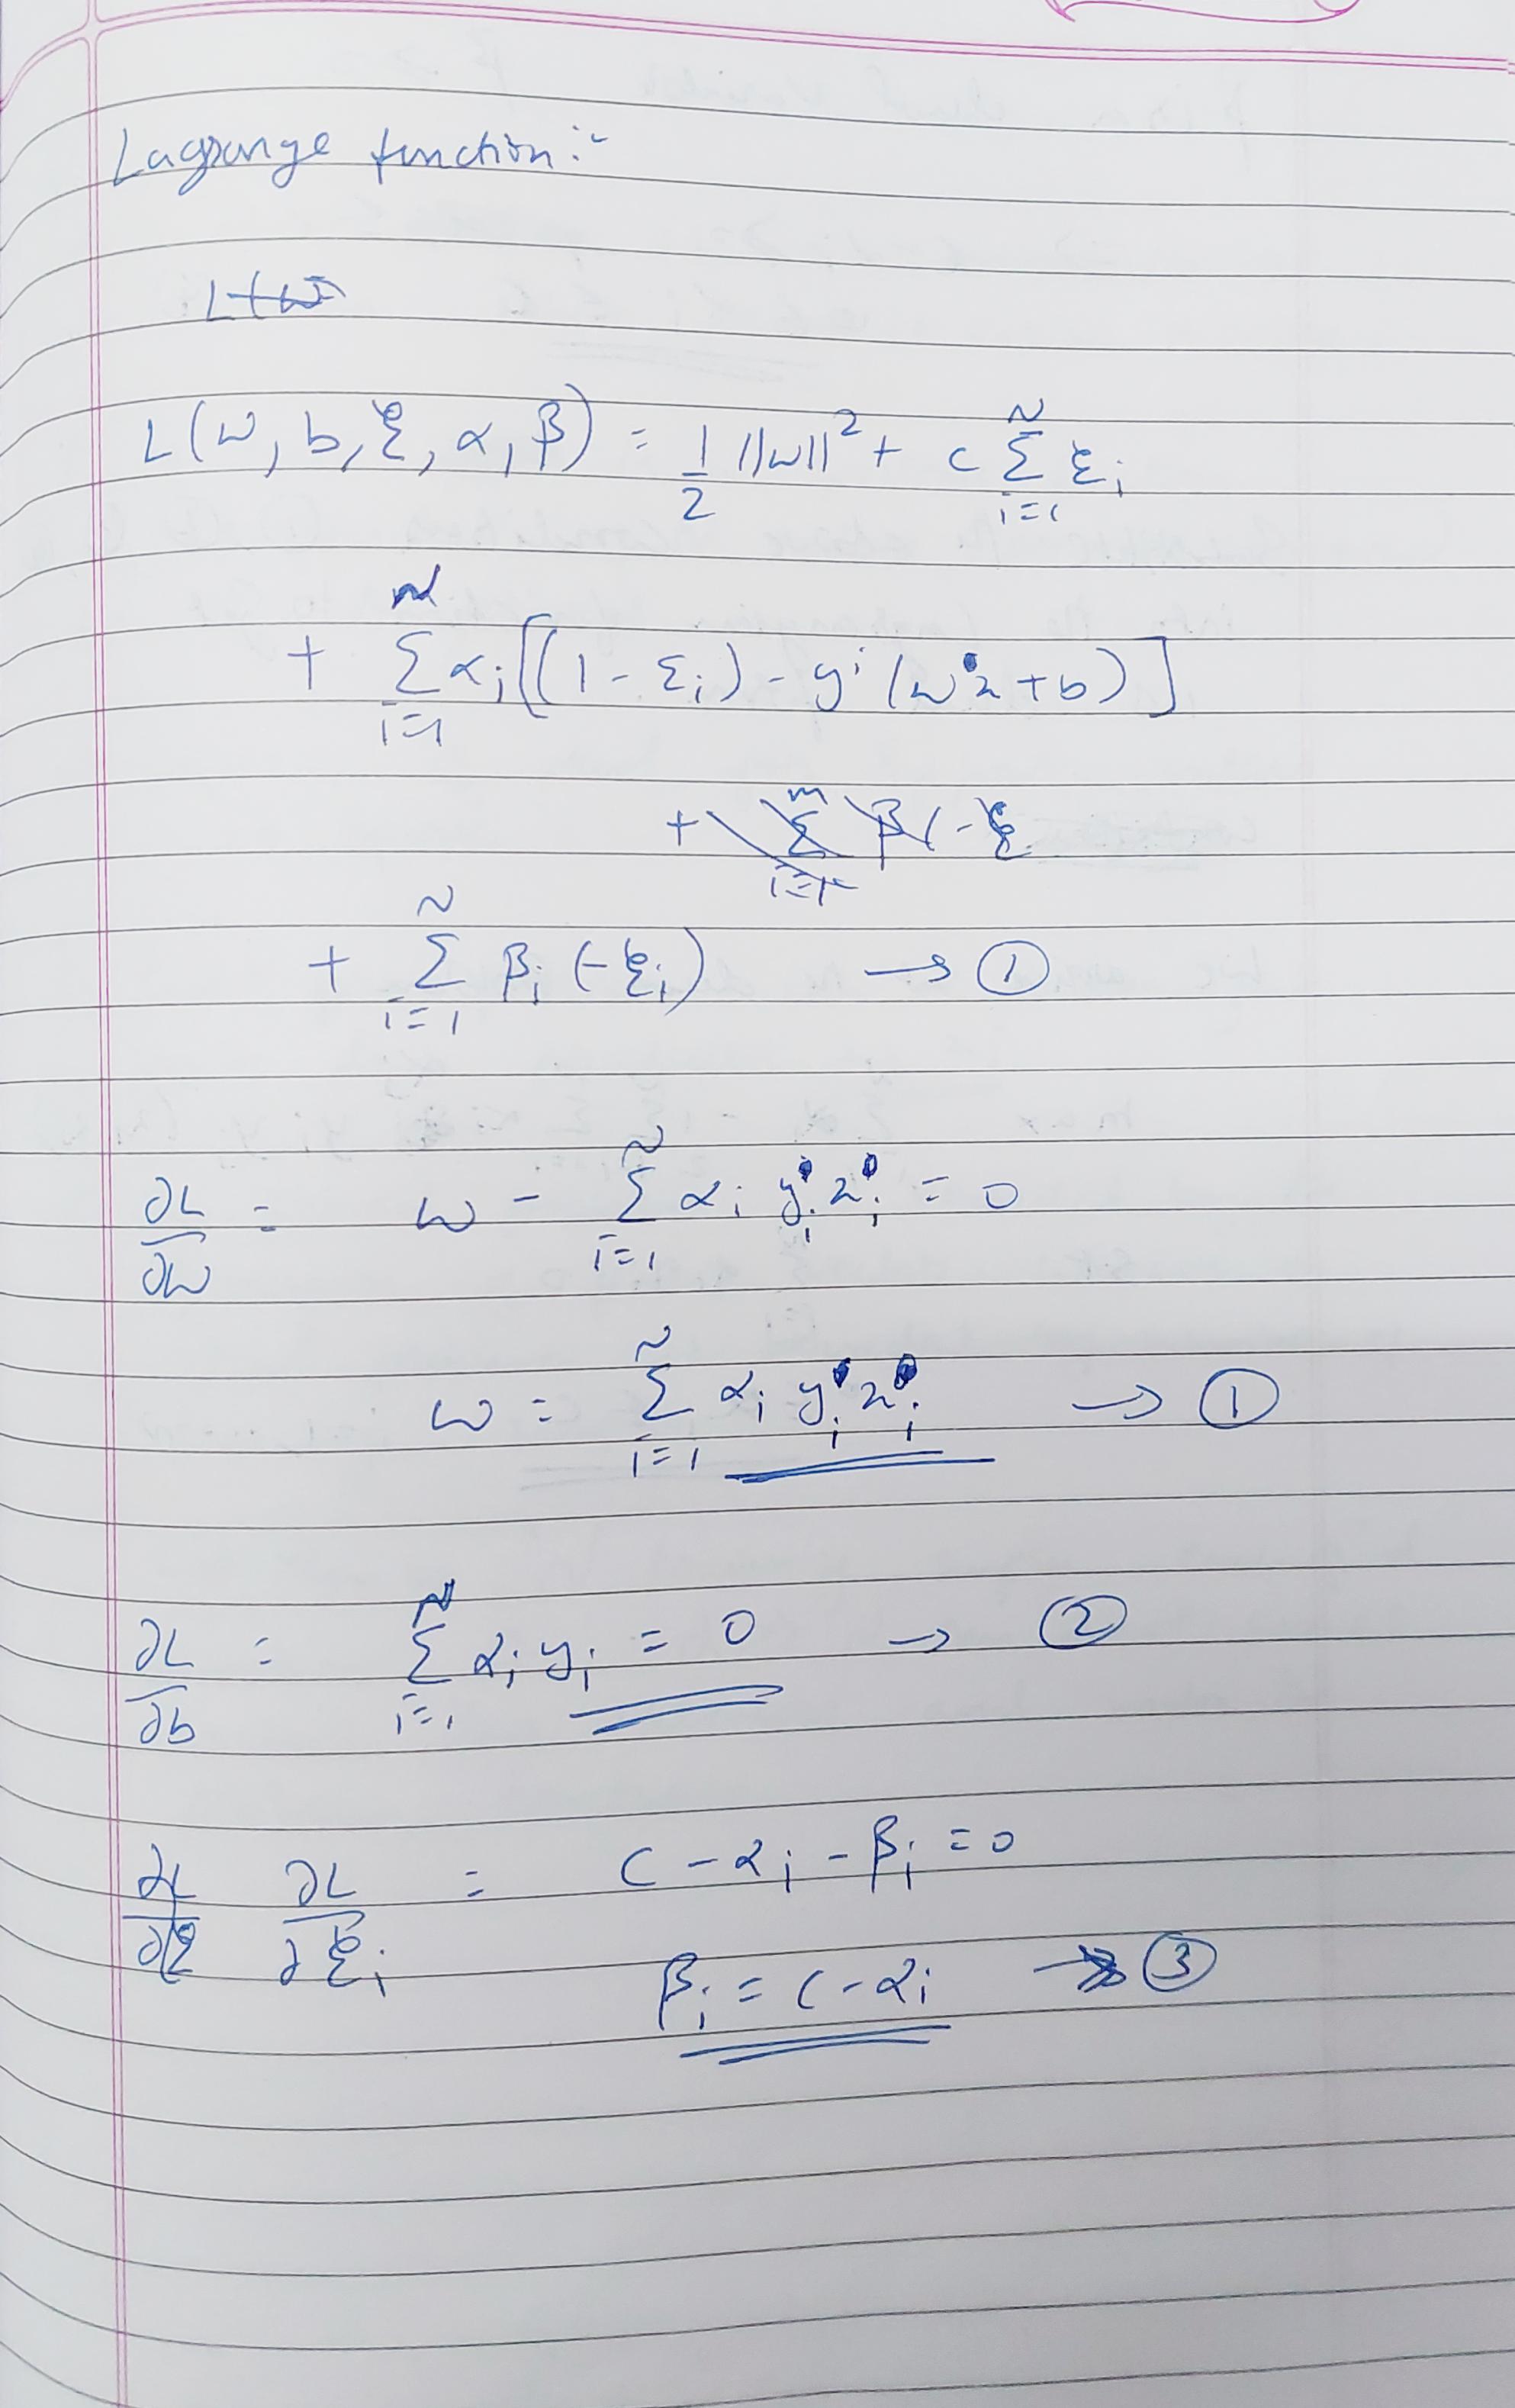 Lagrange function:-
L(w
L(w, b, ξ, α, β) = 1/2 ||w||² + C ∑_{i=1}^{N} ξ_i
+ ∑_{i=1}^{N} α_i [(1 - ξ_i) - y^i (w·x + b)]
+ ∑_{i=1}^{m} β(-ξ
+ ∑_{i=1}^{N} β_i (-ξ_i) → ①
∂L/∂w = w - ∑_{i=1}^{N} α_i y_i x_i = 0
w = ∑_{i=1}^{N} α_i y_i x_i → ①
∂L/∂b = ∑_{i=1}^{N} α_i y_i = 0 → ②
∂L/∂ξ ∂L/∂ξ_i = C - α_i - β_i = 0
β_i = C - α_i → ③